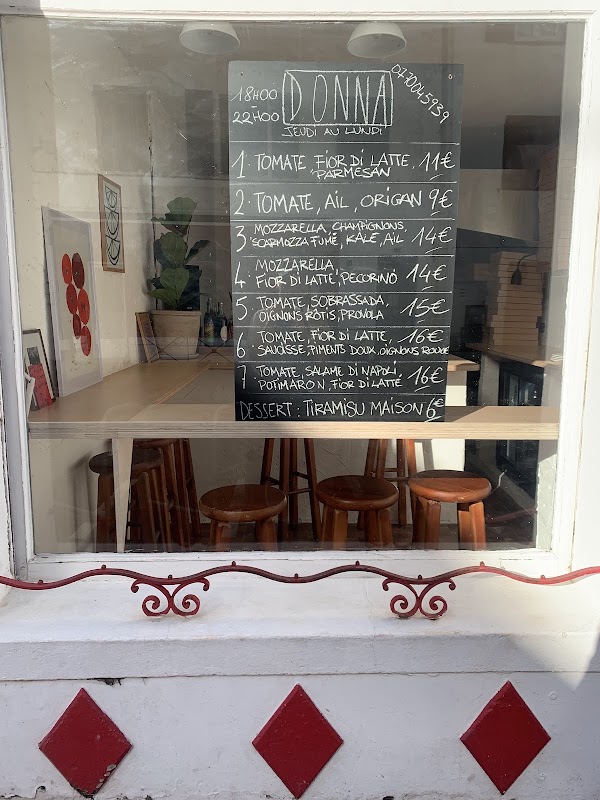 18H00
22H00
DONNA
0770045939
JEUDI AU LUNDI
1. TOMATE, FIOR DI LATTE, 11€
PARMESAN
2. TOMATE, AIL, ORIGAN 9€
3 MOZZARELLA, CHAMPIGNONS, 14€
SCARMOZZA FUMÉ, KALE, AIL
4. MOZZARELLA, 14€
FIOR DI LATTE, PECORINO
5. TOMATE, SOBRASSADA, 15€
OIGNONS RÔTIS, PROVOLA
6. TOMATE, FIOR DI LATTE, 16€
SAUCISSE, PIMENTS DOUX, OIGNONS ROUGE
7. TOMATE, SALAME DI NAPOLI, 16€
POTIMARON, FIOR DI LATTE
DESSERT : TIRAMISU MAISON 6€